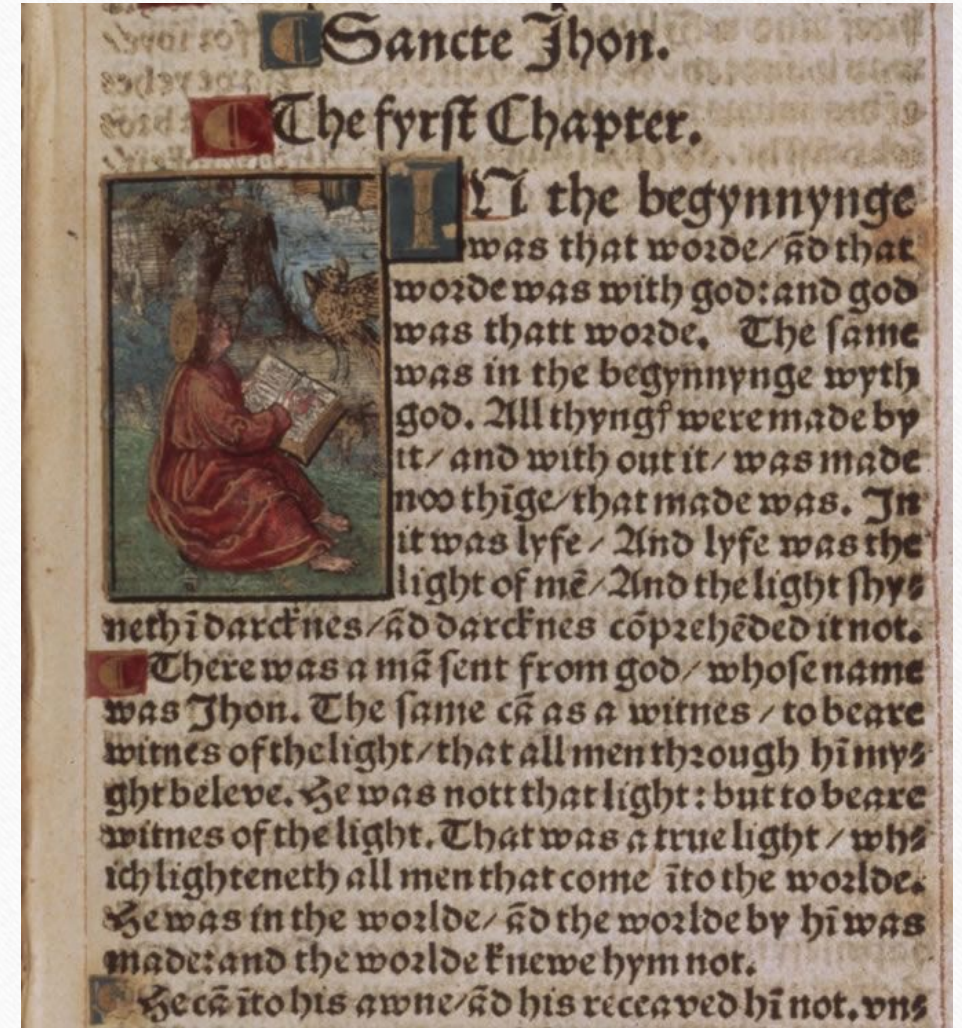 Sancte Jhon.
The fyrst Chapter.
IN the begynnynge
was that worde/ ãd that
worde was with god: and god
was thatt worde. The same
was in the begynnynge wyth
god. All thyngꝭ were made by
it/ and with out it/ was made
noo thĩge/ that made was. In
it was lyfe/ And lyfe was the
light of mẽ/ And the light shy⸗
neth ĩ darcknes/ ãd darcknes cõprehẽded it not.
There was a mã sent from god/ whose name
was Jhon. The same cã as a witnes / to beare
witnes of the light/ that all men through hĩ my⸗
ght beleve. He was nott that light: but to beare
witnes of the light. That was a true light / wh⸗
ich lighteneth all men that come ĩto the worlde.
He was in the worlde/ ãd the worlde by hĩ was
made: and the worlde knewe hym not.
He cã ĩto his awne/ ãd his receaved hĩ not. vn⸗